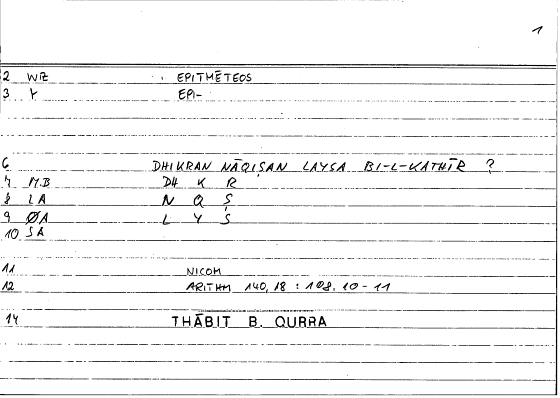 1
2 WZ EPITMĒTEOS
3 Y EPI-
6 DHIKRAN NĀQIṢAN LAYSA BI-L-KATHĪR ?
7 MB DH K R
8 LA N Q Ṣ
9 ØA L Y S
10 SA
11 NICOM
12 ARITHM 140,18 : 108,10-11
14 THĀBIT B. QURRA